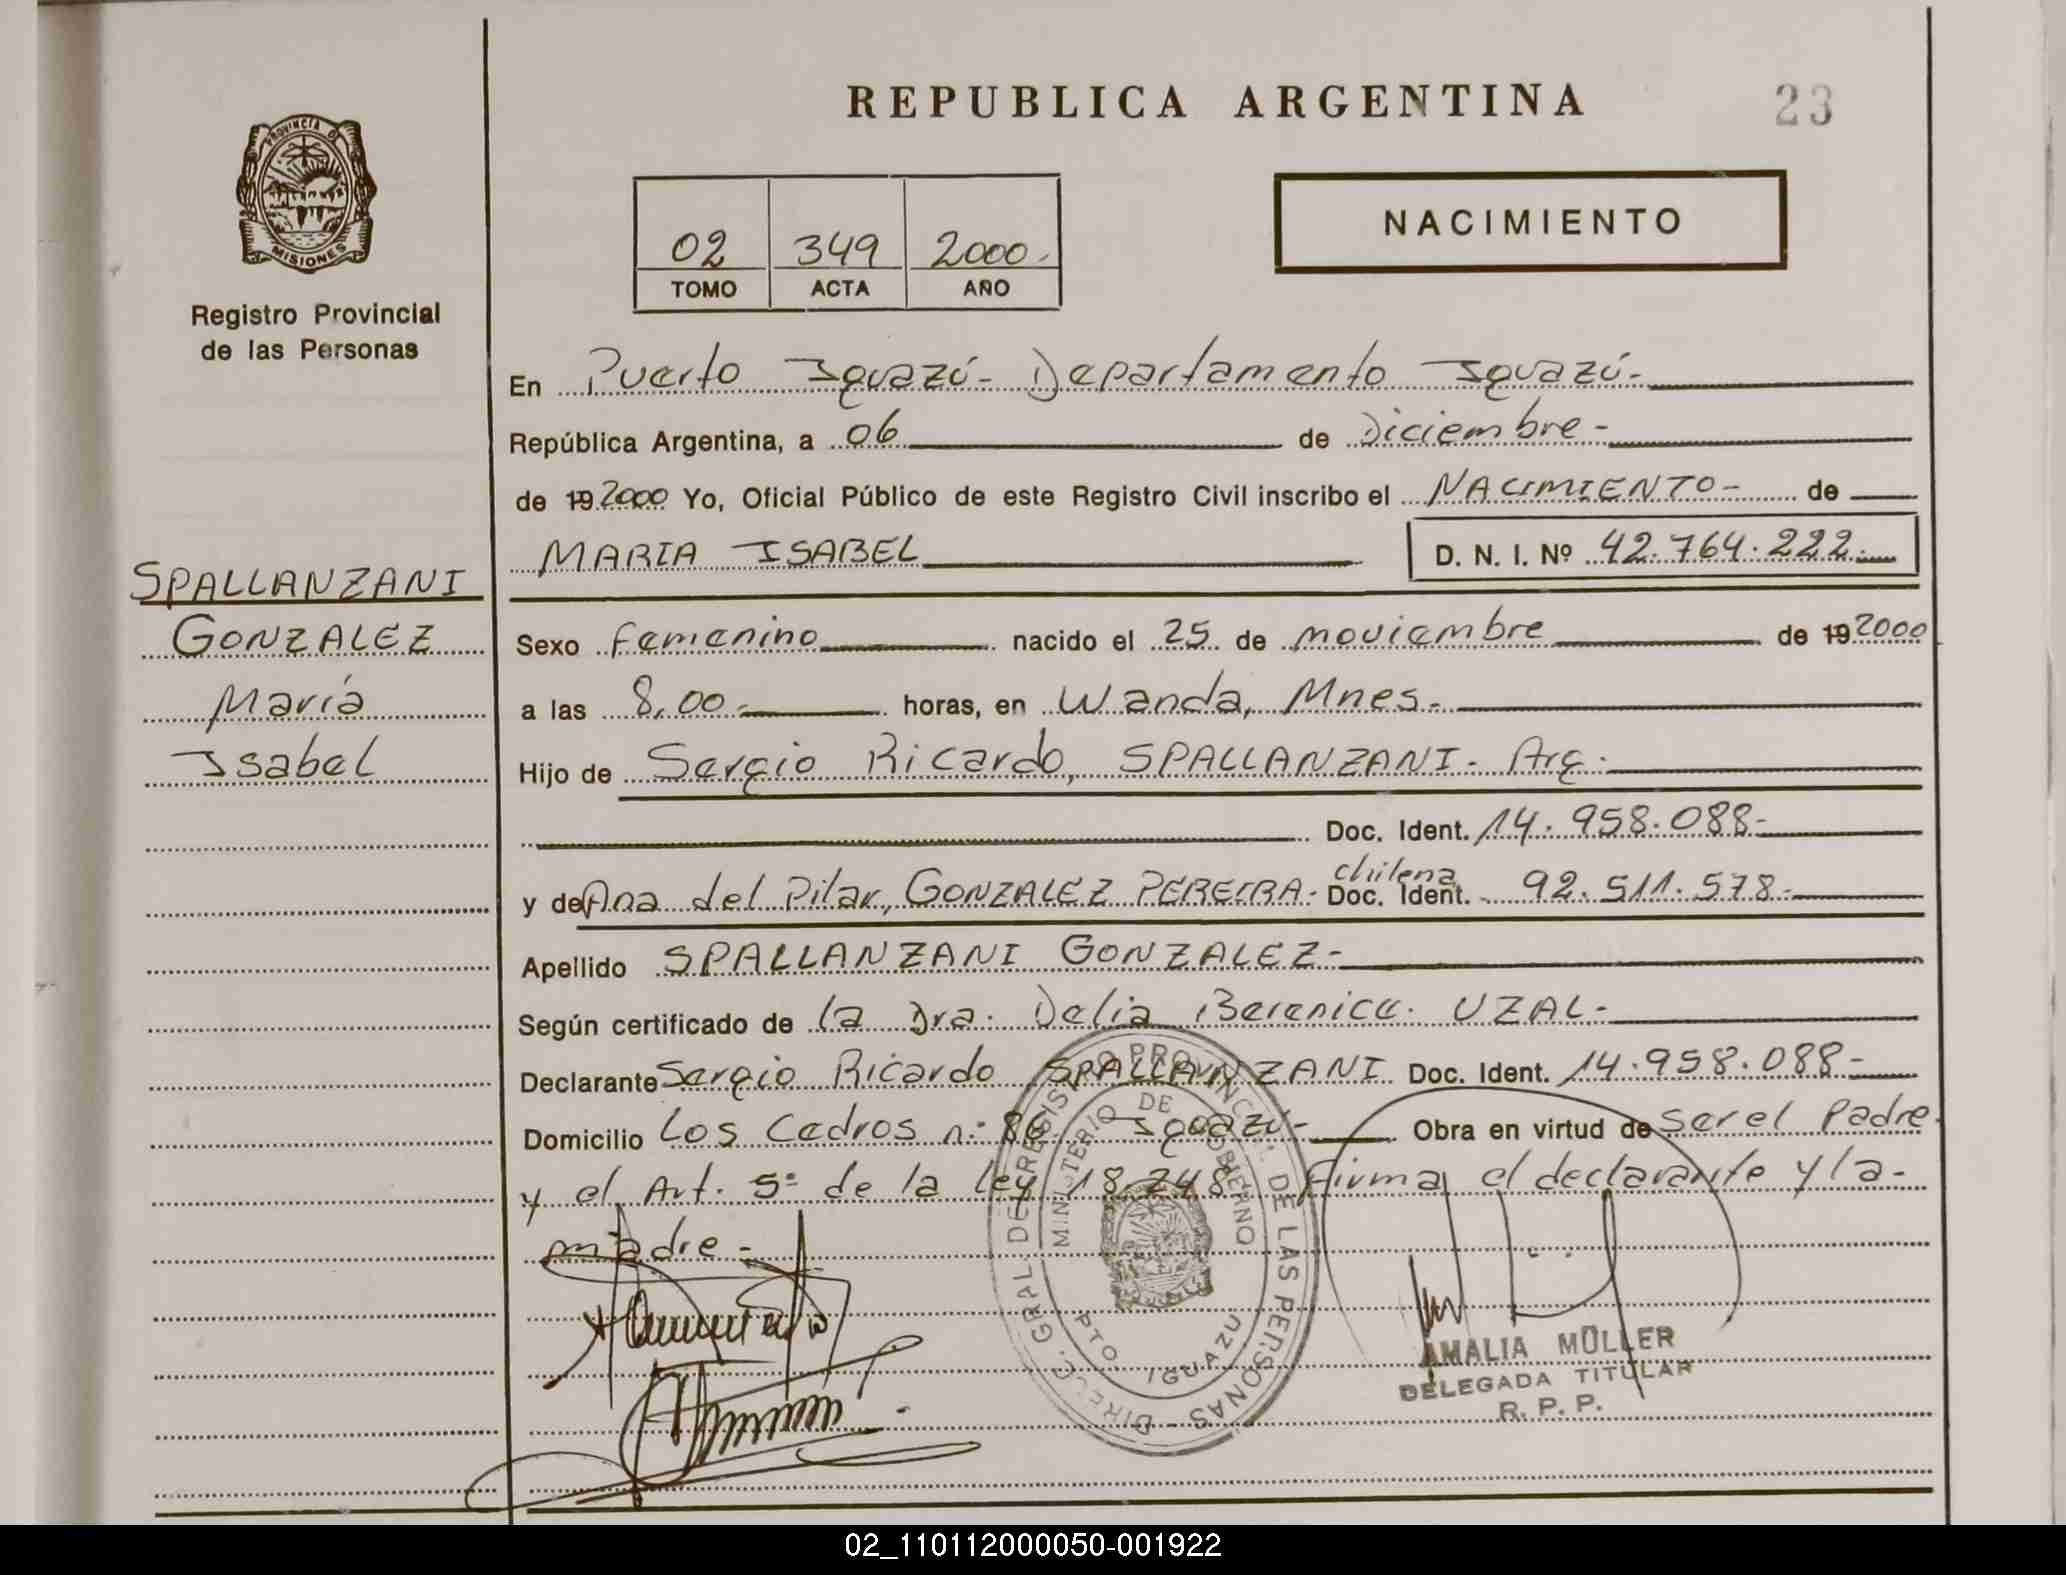 REPUBLICA ARGENTINA
23
PROVINCIA DE
MISIONES
Registro Provincial
de las Personas
NACIMIENTO
02 349 2000
TOMO ACTA AÑO
En Puerto Iguazú- Departamento Iguazú-
República Argentina, a 06 de Diciembre-
de 19 2000 Yo, Oficial Público de este Registro Civil inscribo el NACIMIENTO- de
MARIA ISABEL D. N. I. Nº 42.764.222.
SPALLANZANI
GONZALEZ
María
Isabel
Sexo femenino nacido el 25 de noviembre de 19 2000
a las 8,00- horas, en Wanda, Mnes.
Hijo de Sergio Ricardo, SPALLANZANI. Arg.
Doc. Ident. 14.958.088-
y de Ana del Pilar, GONZALEZ PEREIRA- chilena Doc. Ident. 92.511.578-
Apellido SPALLANZANI GONZALEZ-
Según certificado de la Dra. Delia Berenice. UZAL-
Declarante Sergio Ricardo SPALLANZANI Doc. Ident. 14.958.088-
Domicilio Los Cedros n.º 86 Iguazú- Obra en virtud de ser el Padre.
y el Art. 5º de la Ley 18.248 firma el declarante y la-
madre-
DIREC. GRAL. DE REGISTRO PROVINCIAL DE LAS PERSONAS
MINISTERIO DE GOBIERNO
PTO. IGUAZU
AMALIA MÜLLER
DELEGADA TITULAR
R. P. P.
02_110112000050-001922